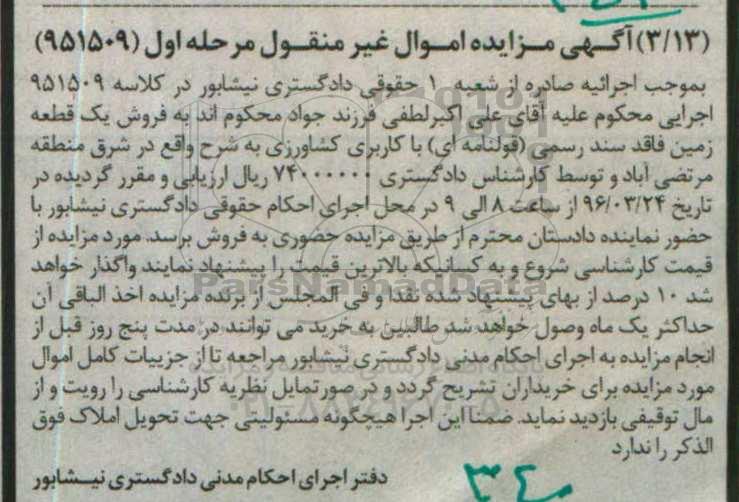 (۳/۱۳) آگهی مزایده اموال غیر منقول مرحله اول (۹۵۱۵۰۹)
بموجب اجرائیه صادره از شعبه ۱ حقوقی دادگستری نیشابور در کلاسه ۹۵۱۵۰۹
اجرایی محکوم علیه آقای علی اکبرلطفی فرزند جواد محکوم اند به فروش یک قطعه
زمین فاقد سند رسمی (قولنامه ای) با کاربری کشاورزی به شرح واقع در شرق منطقه
مرتضی آباد و توسط کارشناس دادگستری ۷۴۰۰۰۰۰۰ ریال ارزیابی و مقرر گردیده در
تاریخ ۹۶/۰۳/۲۴ از ساعت ۸ الی ۹ در محل اجرای احکام حقوقی دادگستری نیشابور با
حضور نماینده دادستان محترم از طریق مزایده حضوری به فروش برسد. مورد مزایده از
قیمت کارشناسی شروع و به کسانیکه بالاترین قیمت را پیشنهاد نمایند واگذار خواهد
شد ۱۰ درصد از بهای پیشنهاد شده نقدا و فی المجلس از برنده مزایده اخذ الباقی آن
حداکثر یک ماه وصول خواهد شد. طالبین به خرید می توانند در مدت پنج روز قبل از
انجام مزایده به اجرای احکام مدنی دادگستری نیشابور مراجعه تا از جزییات کامل اموال
مورد مزایده برای خریداران تشریح گردد و در صورتمایل نظریه کارشناسی را رویت و از
مال توقیفی بازدید نماید. ضمنا این اجرا هیچگونه مسئولیتی جهت تحویل املاک فوق
الذکر را ندارد
دفتر اجرای احکام مدنی دادگستری نیشابور
۳۴۰
ParsNamadData